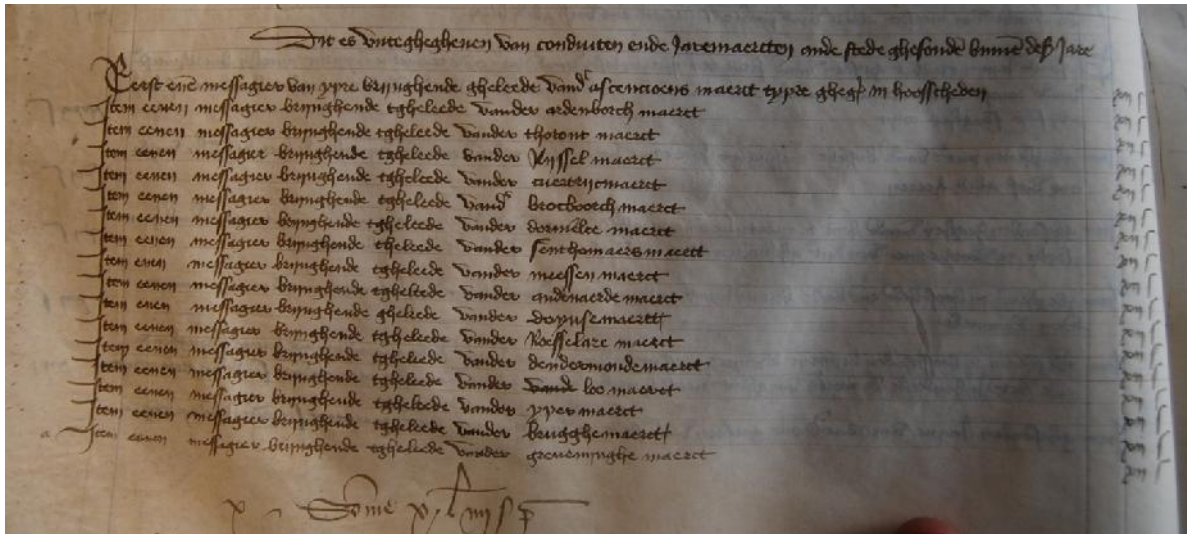 Dit es vuteghegheuen van conduiten ende Jaremaercten ande stede ghesonde binnē deß Jare
Eerst eenē messagier van ypre bringhende ghelede vandr ascencioens maerct typre gheg in hoosscheden
Item eenen messagier bringhende tgheleede vander ardenborch maerct
Item eenen messagier bringhende tgheleede vander thorout maerct
Item eenen messagier bringhende tgheleede vander Ryssel maerct
Item eenen messagier bringhende tgheleede vander cuertrijcmaerct
Item eenen messagier bringhende tgheleede vandr brocboorch maerct
Item eenen messagier bringhende tgheleede vander maerct
Item eenen messagier bringhende theleede vander senthomaers maerct
Item eenen messagier bringhende tgheleede vander meessen maerct
Item eenen messagier bringhende tgheleede vander audenaerde maerct
Item eenen messagier bringhende gheleede vander doynsemaerct
Item eenen messagier bringhende tgheleede vander Roesselare maerct
Item eenen messagier bringhende tgheleede vander dendermondemaerct
Item eenen messagier bringhende tgheleede vander vande loo maerct
Item eenen messagier bringhende tgheleede vander yper maerct
Item eenen messagier bringhende tgheleede vander brugghemaerct
Item eenen messagier bringhende tgheleede vander greueninghe maerct
Some